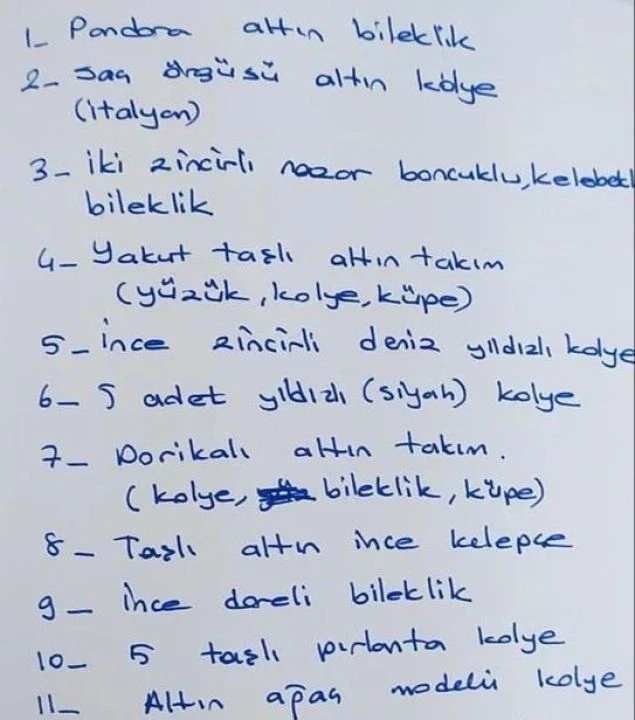 1- Pandora altın bileklik
2- Saç örgüsü altın kolye
(italyan)
3- iki zincirli nazar boncuklu, kelebekl
bileklik
4- Yakut taşlı altın takım
(yüzük, kolye, küpe)
5- ince zincirli deniz yıldızlı kolye
6- 5 adet yıldızlı (siyah) kolye
7- Dorikalı altın takım.
(kolye, bileklik, küpe)
8- Taşlı altın ince kelepçe
9- İnce doreli bileklik
10- 5 taşlı pırlanta kolye
11- Altın ağaç modelli kolye